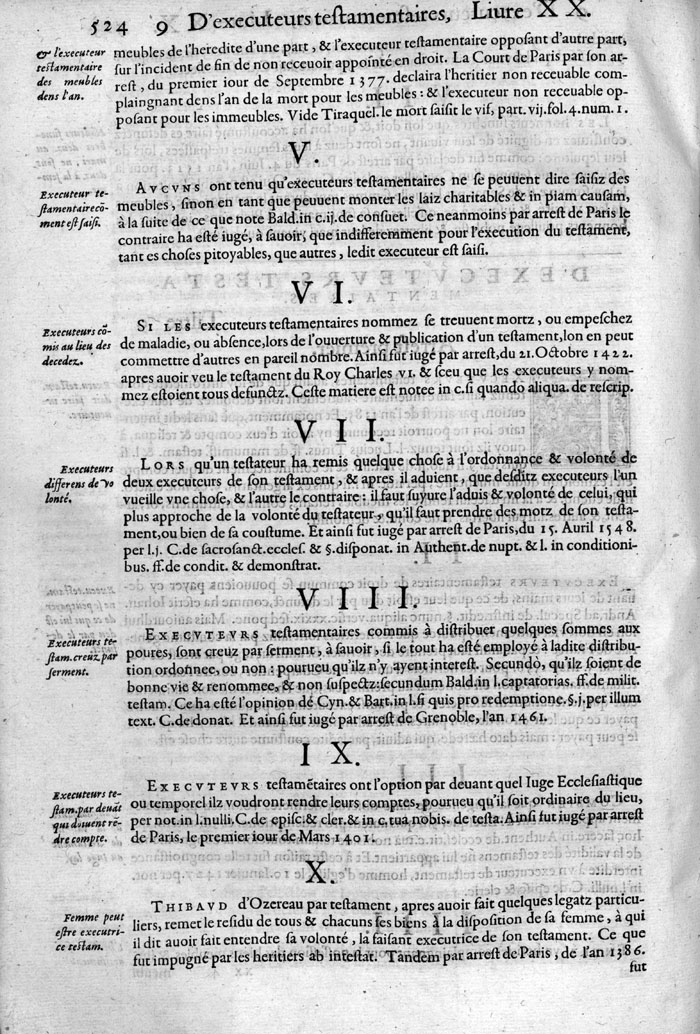 524 9 D'executeurs testamentaires, Liure XX.
& l'executeur
testamentaire
des meubles
dens l'an.
meubles de l'heredite d'une part, & l'executeur testamentaire opposant d'autre part,
sur l'incident de fin de non receuoir appointé en droit. La Court de Paris par son ar-
rest, du premier iour de Septembre 1377. declaira l'heritier non receuable com-
plaingnant dens l'an de la mort pour les meubles: & l'executeur non receuable op-
posant pour les immeubles. Vide Tiraquel. le mort saisit le vif, part. vij. fol. 4. num. 1.
V.
Executeur te-
stamentaire cõ-
ment est saisi.
AVCVNS ont tenu qu'executeurs testamentaires ne se peuuent dire saisiz des
meubles, sinon en tant que peuuent monter les laiz charitables & in piam causam,
à la suite de ce que note Bald. in c. ij. de consuet. Ce neanmoins par arrest de Paris le
contraire ha esté iugé, à sauoir, que indifferemment pour l'execution du testament,
tant es choses pitoyables, que autres, ledit executeur est saisi.
VI.
Executeurs cõ-
mis au lieu des
decedez.
SI LES executeurs testamentaires nommez se treuuent mortz, ou empeschez
de maladie, ou absence, lors de l'ouuerture & publication d'un testament, lon en peut
commettre d'autres en pareil nombre. Ainsi fut iugé par arrest, du 21. Octobre 1422.
apres auoir veu le testament du Roy Charles VI. & sceu que les executeurs y nom-
mez estoient tous defunctz. Ceste matiere est notee in c. si quando aliqua. de rescrip.
VII.
Executeurs
differens de vo
lonté.
LORS qu'un testateur ha remis quelque chose à l'ordonnance & volonté de
deux executeurs de son testament, & apres il aduient, que desditz executeurs l'un
vueille vne chose, & l'autre le contraire: il faut suyure l'aduis & volonté de celui, qui
plus approche de la volonté du testateur, qu'il faut prendre des motz de son testa-
ment, ou bien de sa coustume. Et ainsi fut iugé par arrest de Paris, du 15. Auril 1548.
per l. j. C. de sacrosanct. eccles. & §. disponat. in Authent. de nupt. & l. in conditioni-
bus. ff. de condit. & demonstrat.
VIII.
Executeurs te-
stam. creuz par
serment.
EXECVTEVRS testamentaires commis à distribuer quelques sommes aux
poures, sont creuz par serment, à sauoir, si le tout ha esté employé à ladite distribu-
tion ordonnee, ou non: pourueu qu'ilz n'y ayent interest. Secundò, qu'ilz soient de
bonne vie & renommee, & non suspectz: secundum Bald. in l. captatorias. ff. de milit.
testam. Ce ha esté l'opinion de Cyn. & Bart. in l. si quis pro redemptione. §. j. per illum
text. C. de donat. Et ainsi fut iugé par arrest de Grenoble, l'an 1461.
IX.
Executeurs te-
stam. par deuãt
qui doiuent rē-
dre compte.
EXECVTEVRS testamētaires ont l'option par deuant quel Iuge Ecclesiastique
ou temporel ilz voudront rendre leurs comptes, pourueu qu'il soit ordinaire du lieu,
per not. in l. nulli. C. de episc. & cler. & in c. tua nobis. de testa. Ainsi fut iugé par arrest
de Paris, le premier iour de Mars 1401.
X.
Femme peut
estre executri-
ce testam.
THIBAVD d'Ozereau par testament, apres auoir fait quelques legatz particu-
liers, remet le residu de tous & chacuns ses biens à la disposition de sa femme, à qui
il dit auoir fait entendre sa volonté, la faisant executrice de son testament. Ce que
fut impugné par les heritiers ab intestat. Tandem par arrest de Paris, de l'an 1386.
fut